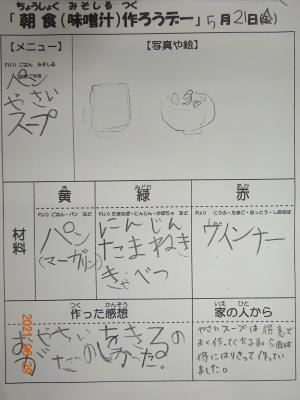 ちょうしょく みそしる つく
「朝食(味噌汁)作ろうデー」5月21日(金)
【メニュー】
【写真や絵】
れい) ごはん みそしる
パン
やさい
スープ
黄
き
緑
みどり
赤
あか
材料
れい) ごはん・パン など
れい) たまねぎ・にんじん・かぼちゃ など
れい) とうふ・たまご・なっとう・しおさば
パン
(マーガリン)
にんじん
たまねぎ
きゃべつ
ウインナー
つく かんそう
作った感想
いえ ひと
家の人から
やさいをきるの
がたのしかった。
やさいスープは得意で
よく作ってくれる。今回は
特にはりきって作ってい
ました。
2021